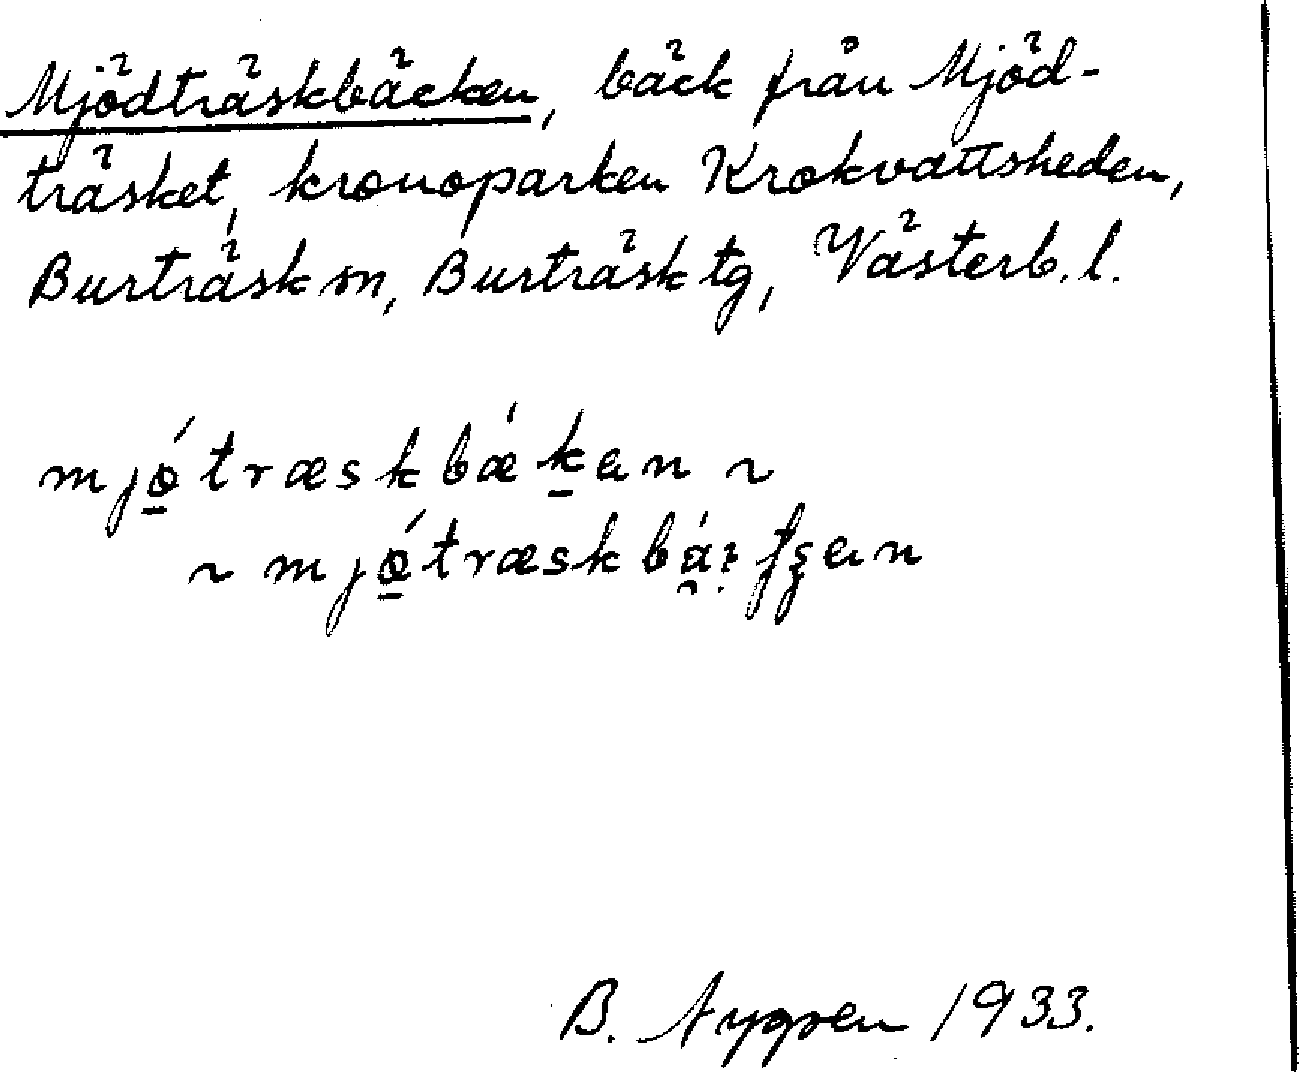 Mjödträskbäcken, bäck från Mjöd-
träsket, kronoparken Krokvattsheden,
Burträsk sn, Burträsk tg, Västerb. l.
mjǿ̱træskbǽḵen ~
~ mjǿ̱træskb
B. Nygren 1933.